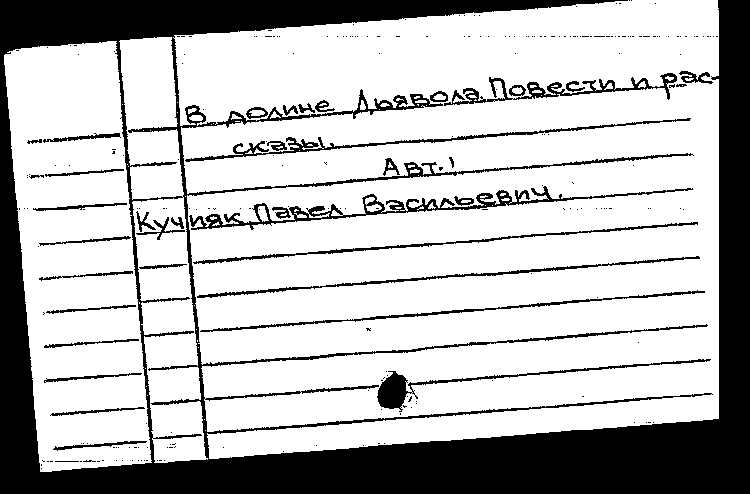 В долине Дьявола. Повести и рас-
сказы.
Авт.!
Кучияк, Павел Васильевич.